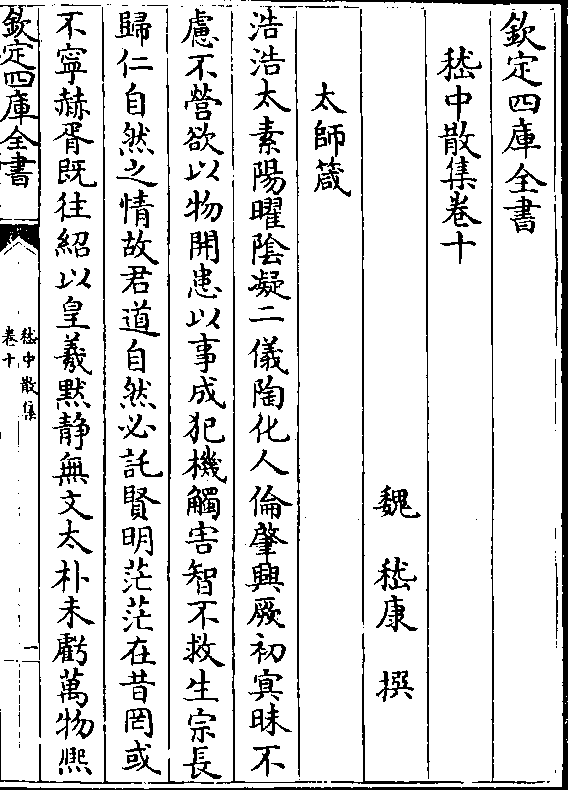 欽定四庫全書
嵇中散集卷十
魏 嵇康 撰
太師箴
浩浩太素陽曜陰凝二儀陶化人倫肇興厥初冥昧不
慮不營欲以物開患以事成犯機觸害智不救生宗長
歸仁自然之情故君道自然必託賢明茫茫在昔罔或
不寧赫胥既往紹以皇羲默静無文太朴未虧萬物熈
欽定四庫全書
嵇中散集
卷十
一